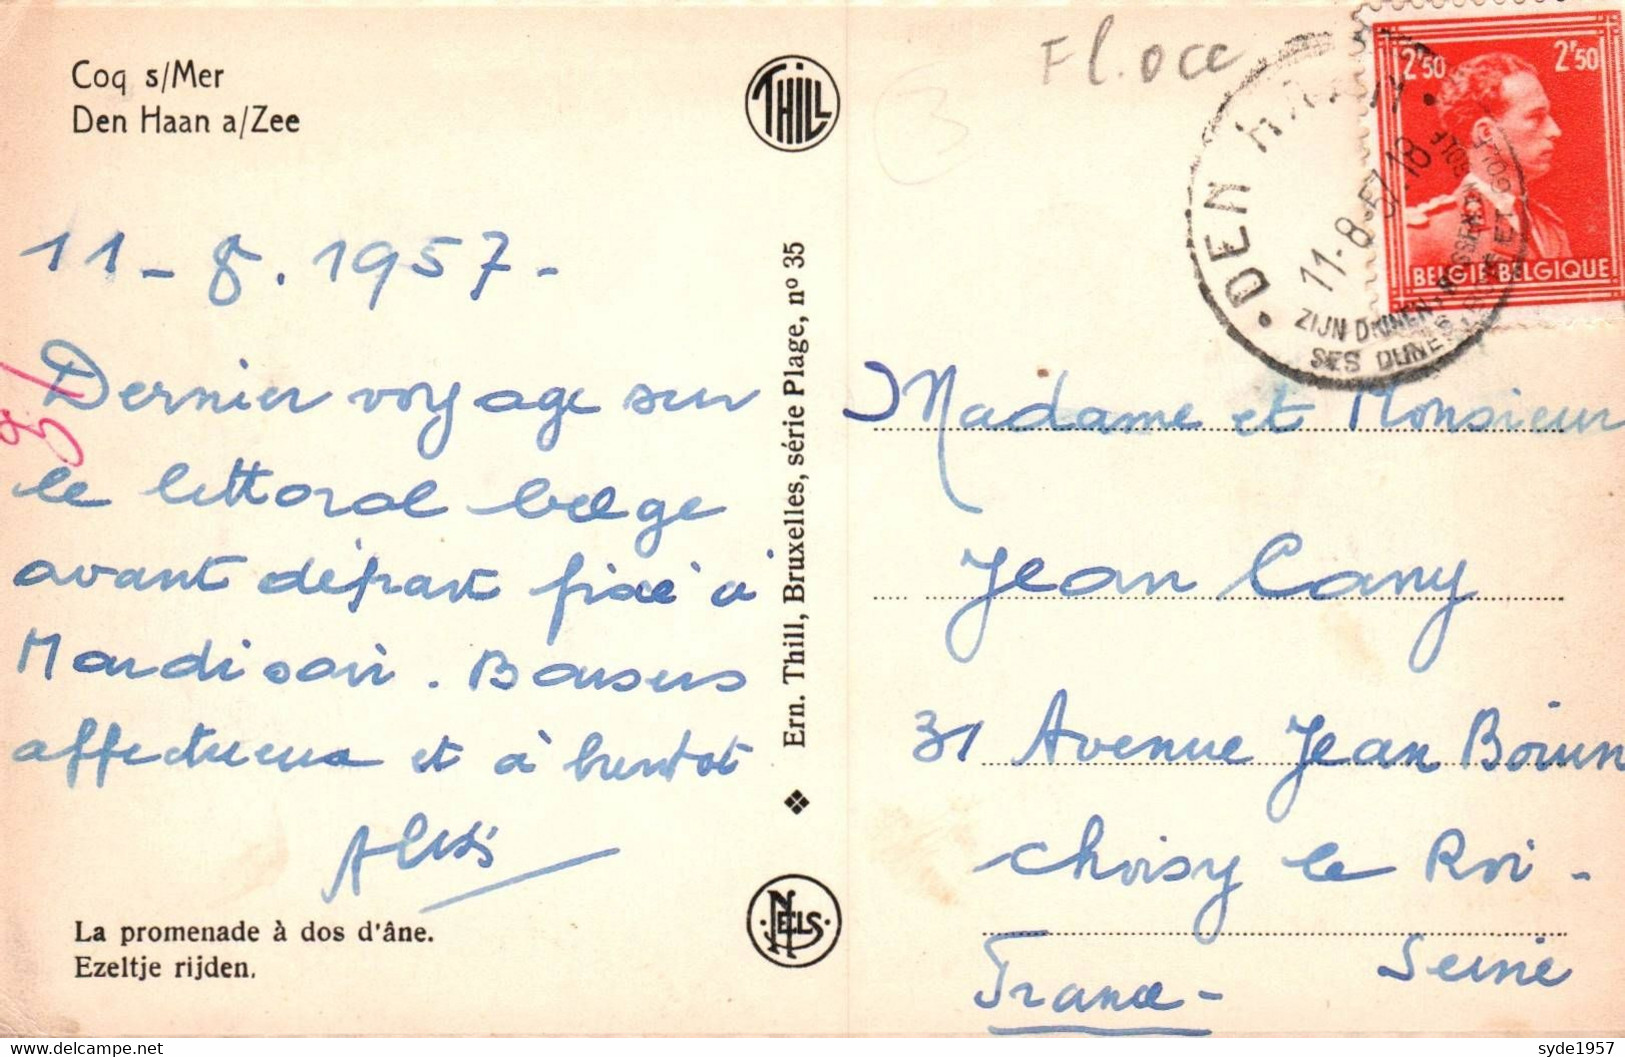 Coq s/Mer
Den Haan a/Zee
THILL
Fl. occ
3
11 - 8 . 1957 -
Dernier voyage sur
le littoral belge
avant départ fixé à
Mardi soir. Baisers
affectueux et à bientôt
La promenade à dos d'âne.
Ezeltje rijden.
Ern. Thill, Bruxelles, série Plage, nº 35
NELS
DEN HAAN
11-8-57-18
ZIJN DUINEN,
SES DUNES
2F50
2F50
BELGIE-BELGIQUE
Madame et Monsieur
Jean Cany
31 Avenue Jean
Choisy le Roi -
Seine
France -
syde1957